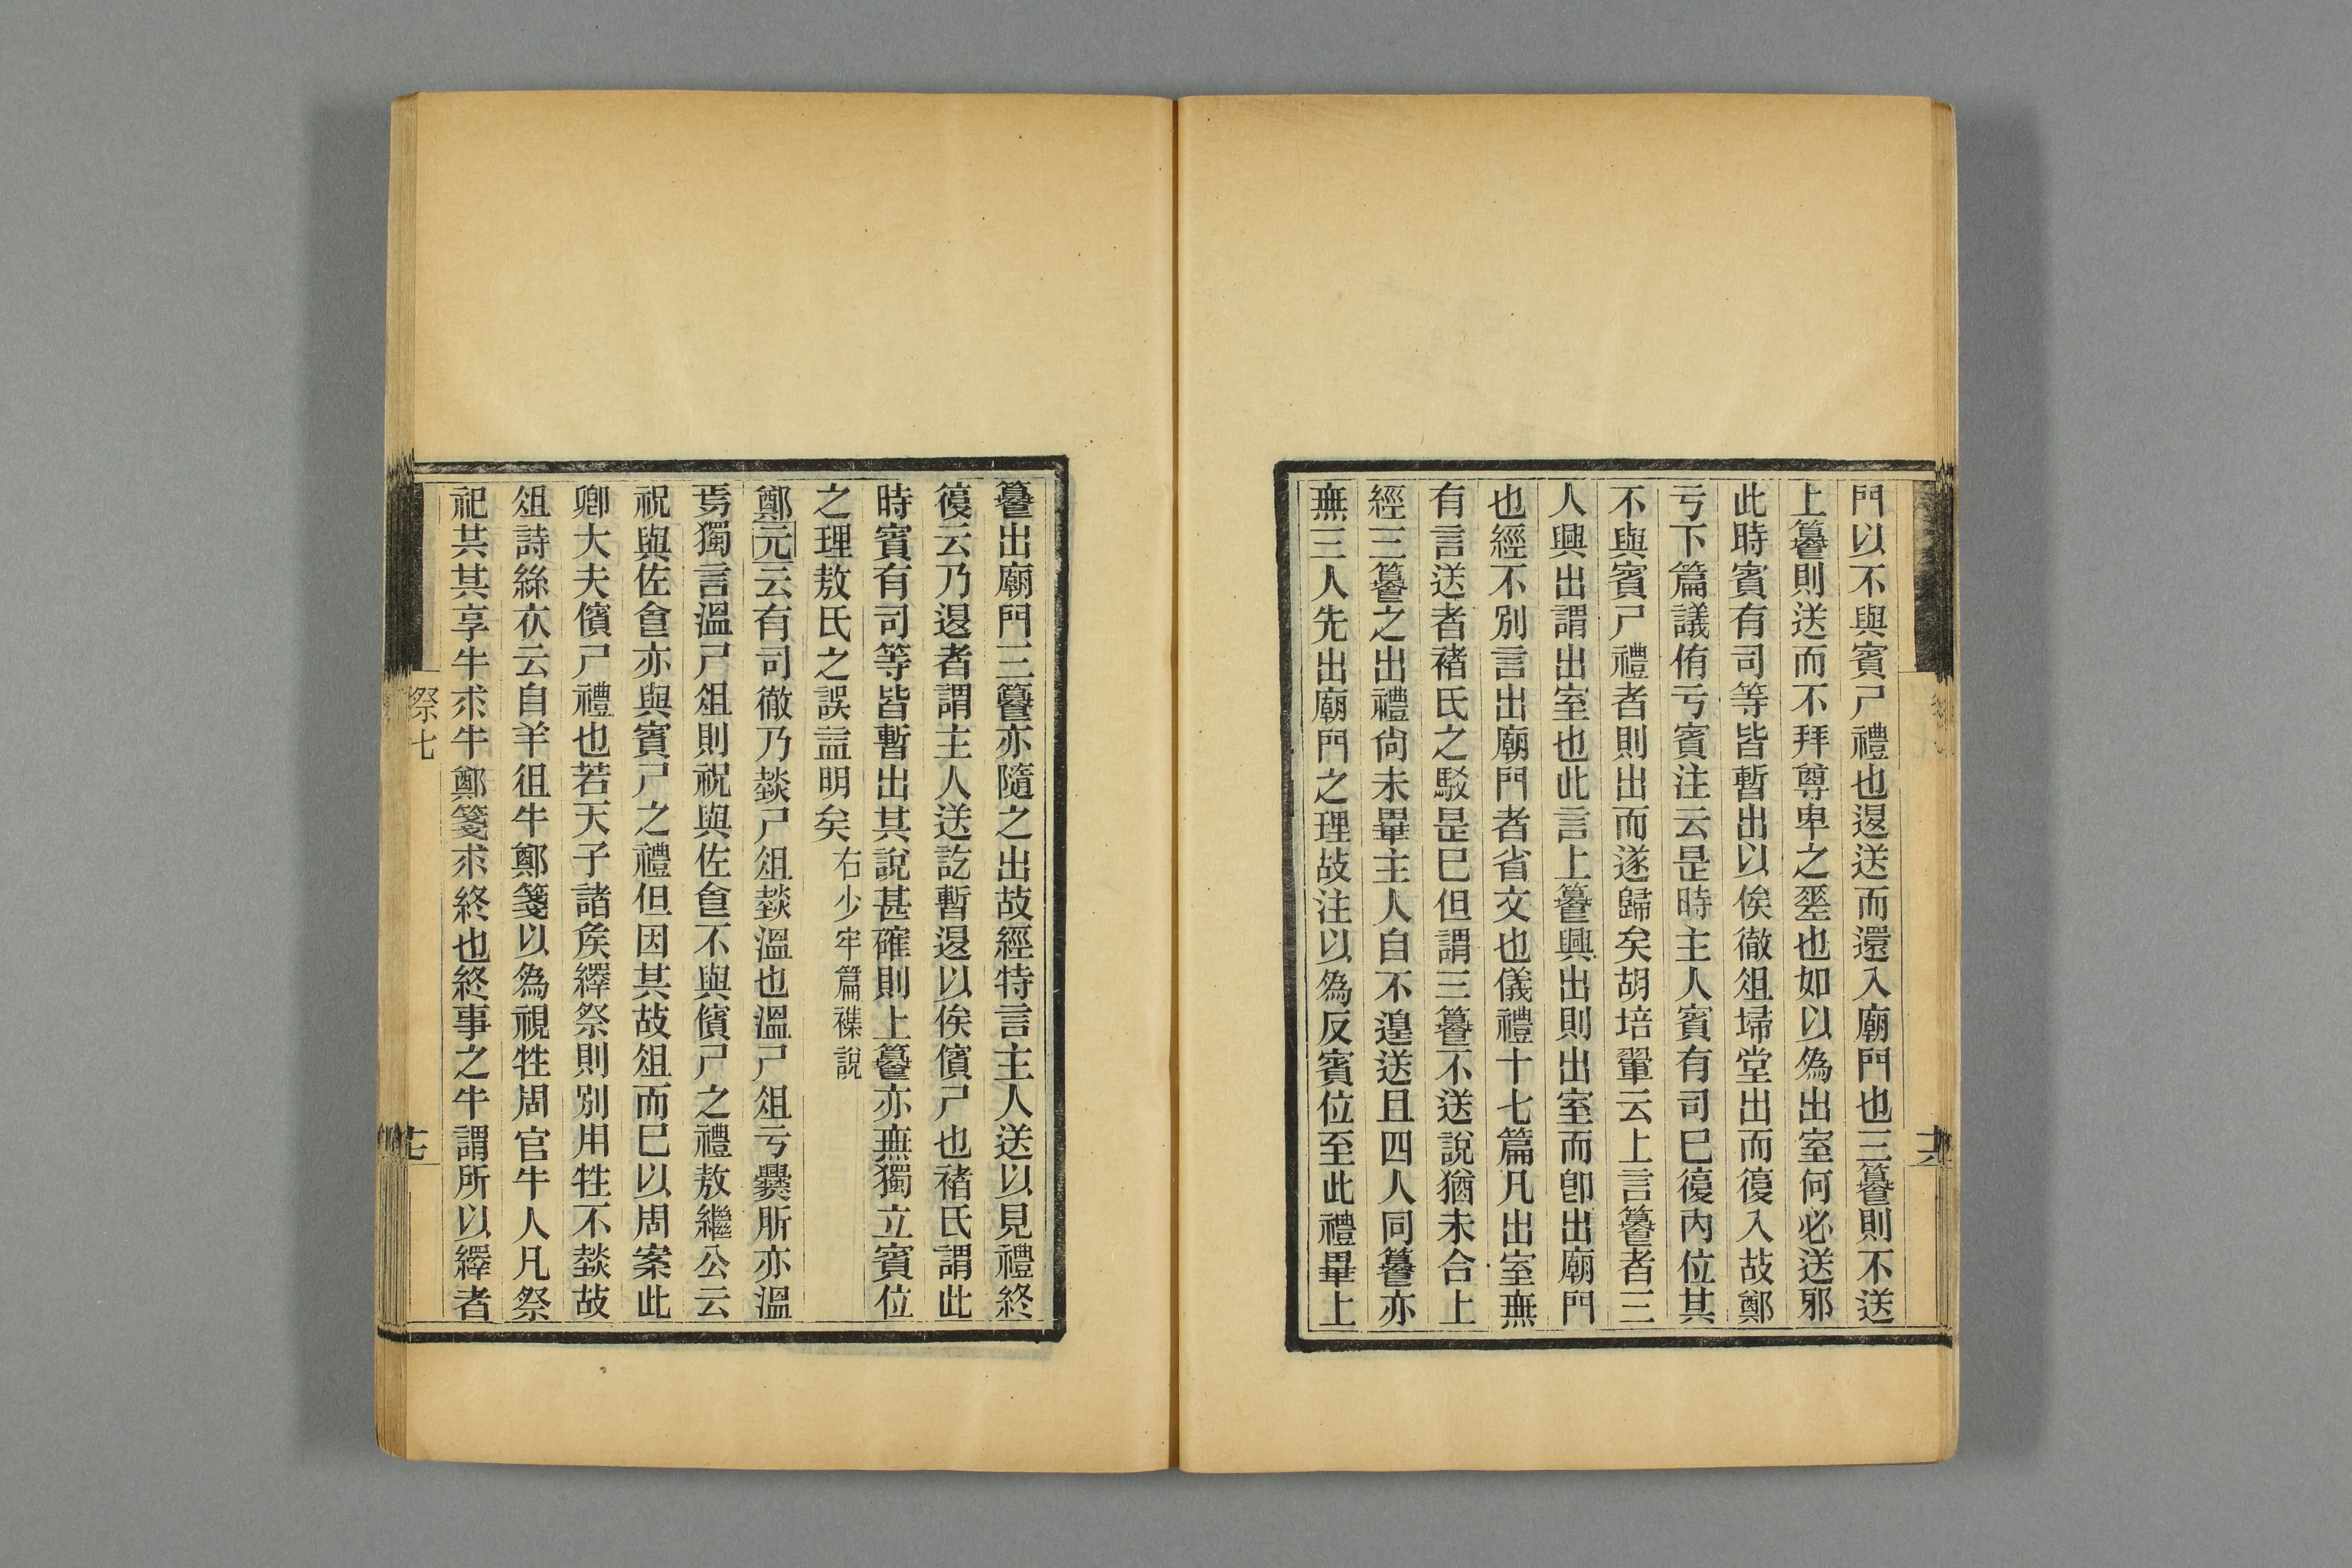 門以不與賓尸禮也𢓴送而還入廟門也三籑則不送
上籑則送而不拜尊卑之𢀩也如以為出室何必送邪
此時賓有司等皆暫出以俟徹俎埽堂出而復入故鄭
亏下篇議侑亏賓注云是時主人賓有司巳復內位其
不與賓尸禮者則出而遂歸矣胡培翬云上言籑者三
人興出謂出室也此言上籑興出則出室而卽出廟門
也經不別言出廟門者省文也儀禮十七篇凡出室無
有言送者褚氏之駁是巳但謂三籑不送說猶未合上
經三籑之出禮尙未畢主人自不遑送且四人同籑亦
無三人先出廟門之理故注以為反賓位至此禮畢上
籑出廟門三籑亦隨之出故經特言主人送以見禮終
復云乃𢓴者謂主人送訖暫𢓴以俟儐尸也褚氏謂此
時賓有司等皆暫出其說甚確則上籑亦無獨立賓位
之理敖氏之誤益明矣右少牢篇襍說
鄭元云有司徹乃燅尸俎燅溫也溫尸俎亏爨肵亦溫
焉獨言溫尸俎則祝與佐食不與儐尸之禮敖繼公云
祝與佐食亦與賓尸之禮但因其故俎而巳以周案此
卿大夫儐尸禮也若天子諸矦繹祭則別用牲不燅故
俎詩絲衣云自羊徂牛鄭箋以為視牲周官牛人凡祭
祀共其享牛求牛鄭箋求終也終事之牛謂所以繹者
祭七
十七
十六